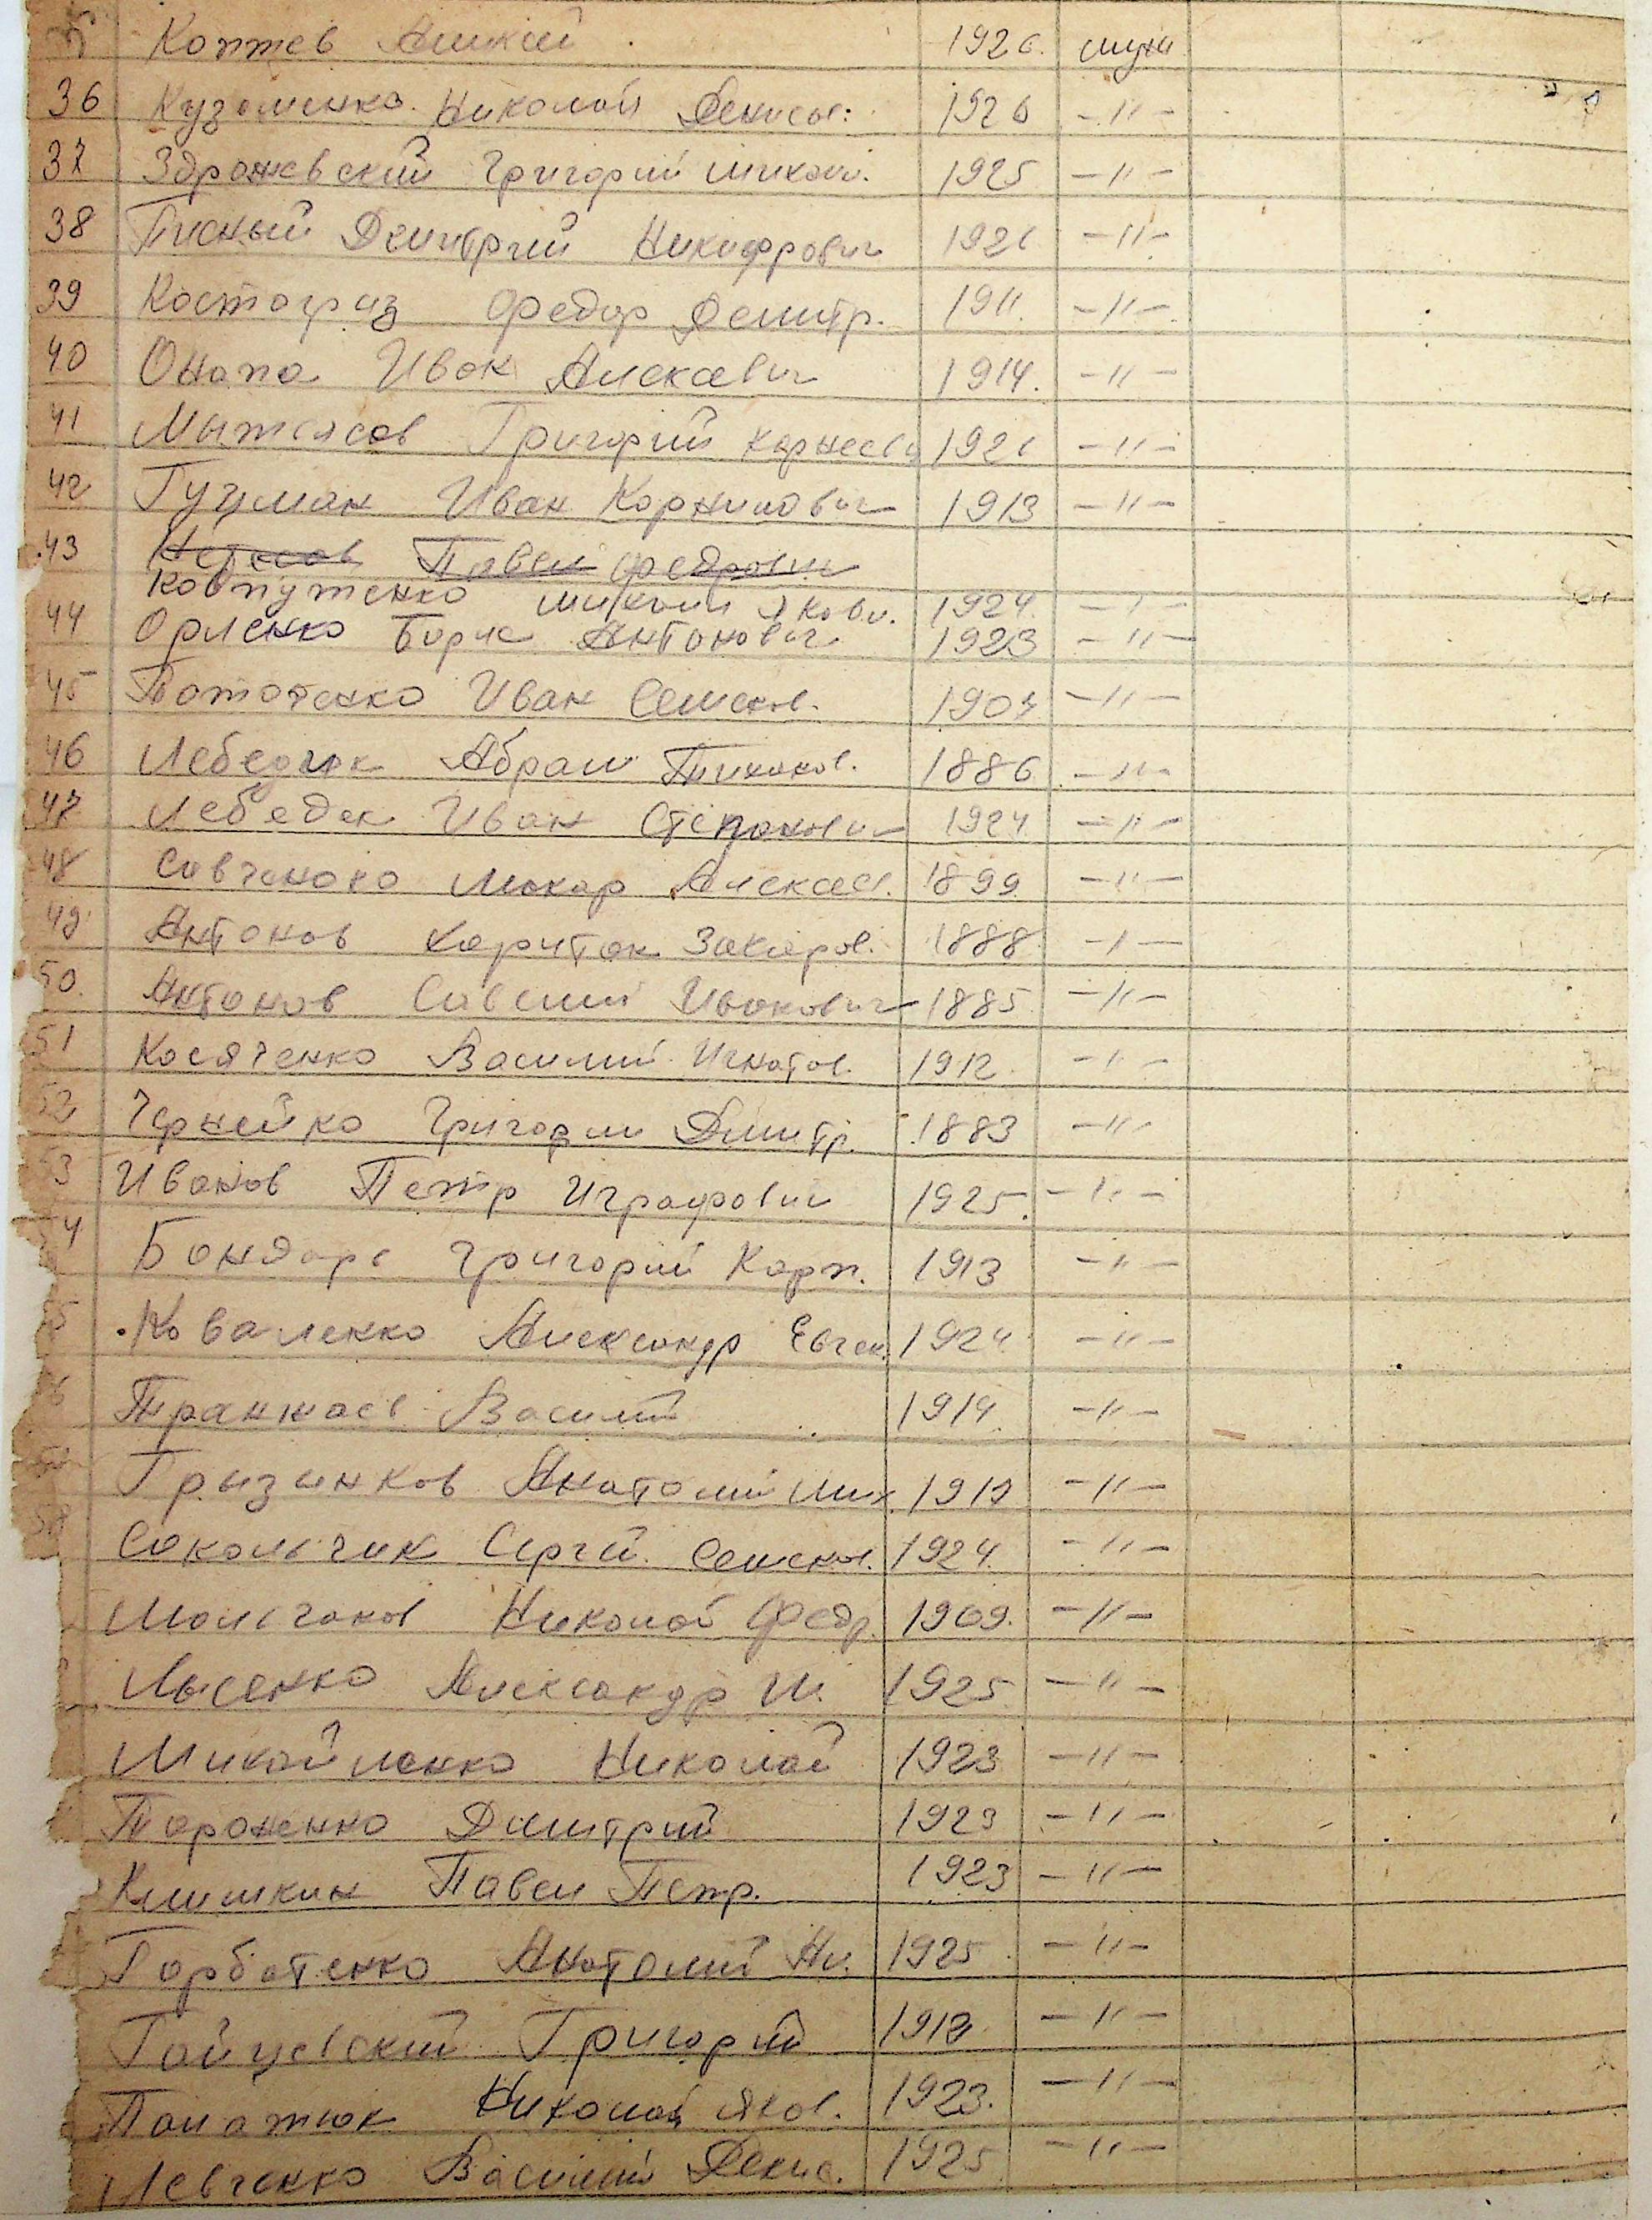 Коптев Алексей 1926. муж
36 Кузьменко Николай Денисов: 1926 -"-
37 Здрожевский Григорий Михайл. 1925 -"-
38 Писный Демитрий Никифрович 1921 -"-
39 Костогриз Федор Демитр. 1911. -"-
40 Онопа Иван Алексеевич 1914. -"-
41 Григорий Корнеевич 1921 -"-
42 Гуцман Иван Корнилович 1913 -"-
43 Павел Федрович
Ковпутенко Яковл. 1924. -"-
44 Орленко Борис Антонович 1923 -"-
45 Пототенко Иван Семенов. 1904 -"-
46 Лебедик Абрам Тихонов. 1886 -"-
47 Лебедек Иван Степанович 1924 -"-
48 Савченоко Макар Алексеев. 1899 -"-
49 Антонов Харитон Захаров. 1888 -"-
50. Антонов Савелий Иванович 1885 -"-
51 Косяченко Василий Игнатов. 1912. -"-
52 Чернейко Григории Дмитр. 1883 -"-
53 Иванов Петр Играфович 1925. -"-
4 Бондарь Григорий Карп. 1913 -"-
5 Коваленко Александр Евген. 1924 -"-
6 Василий 1914. -"-
Грызинков Анатолий Мих. -"-
58 Сокольчик Сергей Семенов. 1924. -"-
Молчанов Николай Федр. 1909. -"-
Лысенко Александр М. 1925 -"-
Михайленко Николай 1923 -"-
Пороненко Дмитрий 1923 -"-
Климкин Павел Петр. 1923 -"-
Горбатенко Анатолий Ни. 1925 -"-
Гайцевский Григорий -"-
Николай Яков. 1923. -"-
Левченко Василий Денис. 1925 -"-